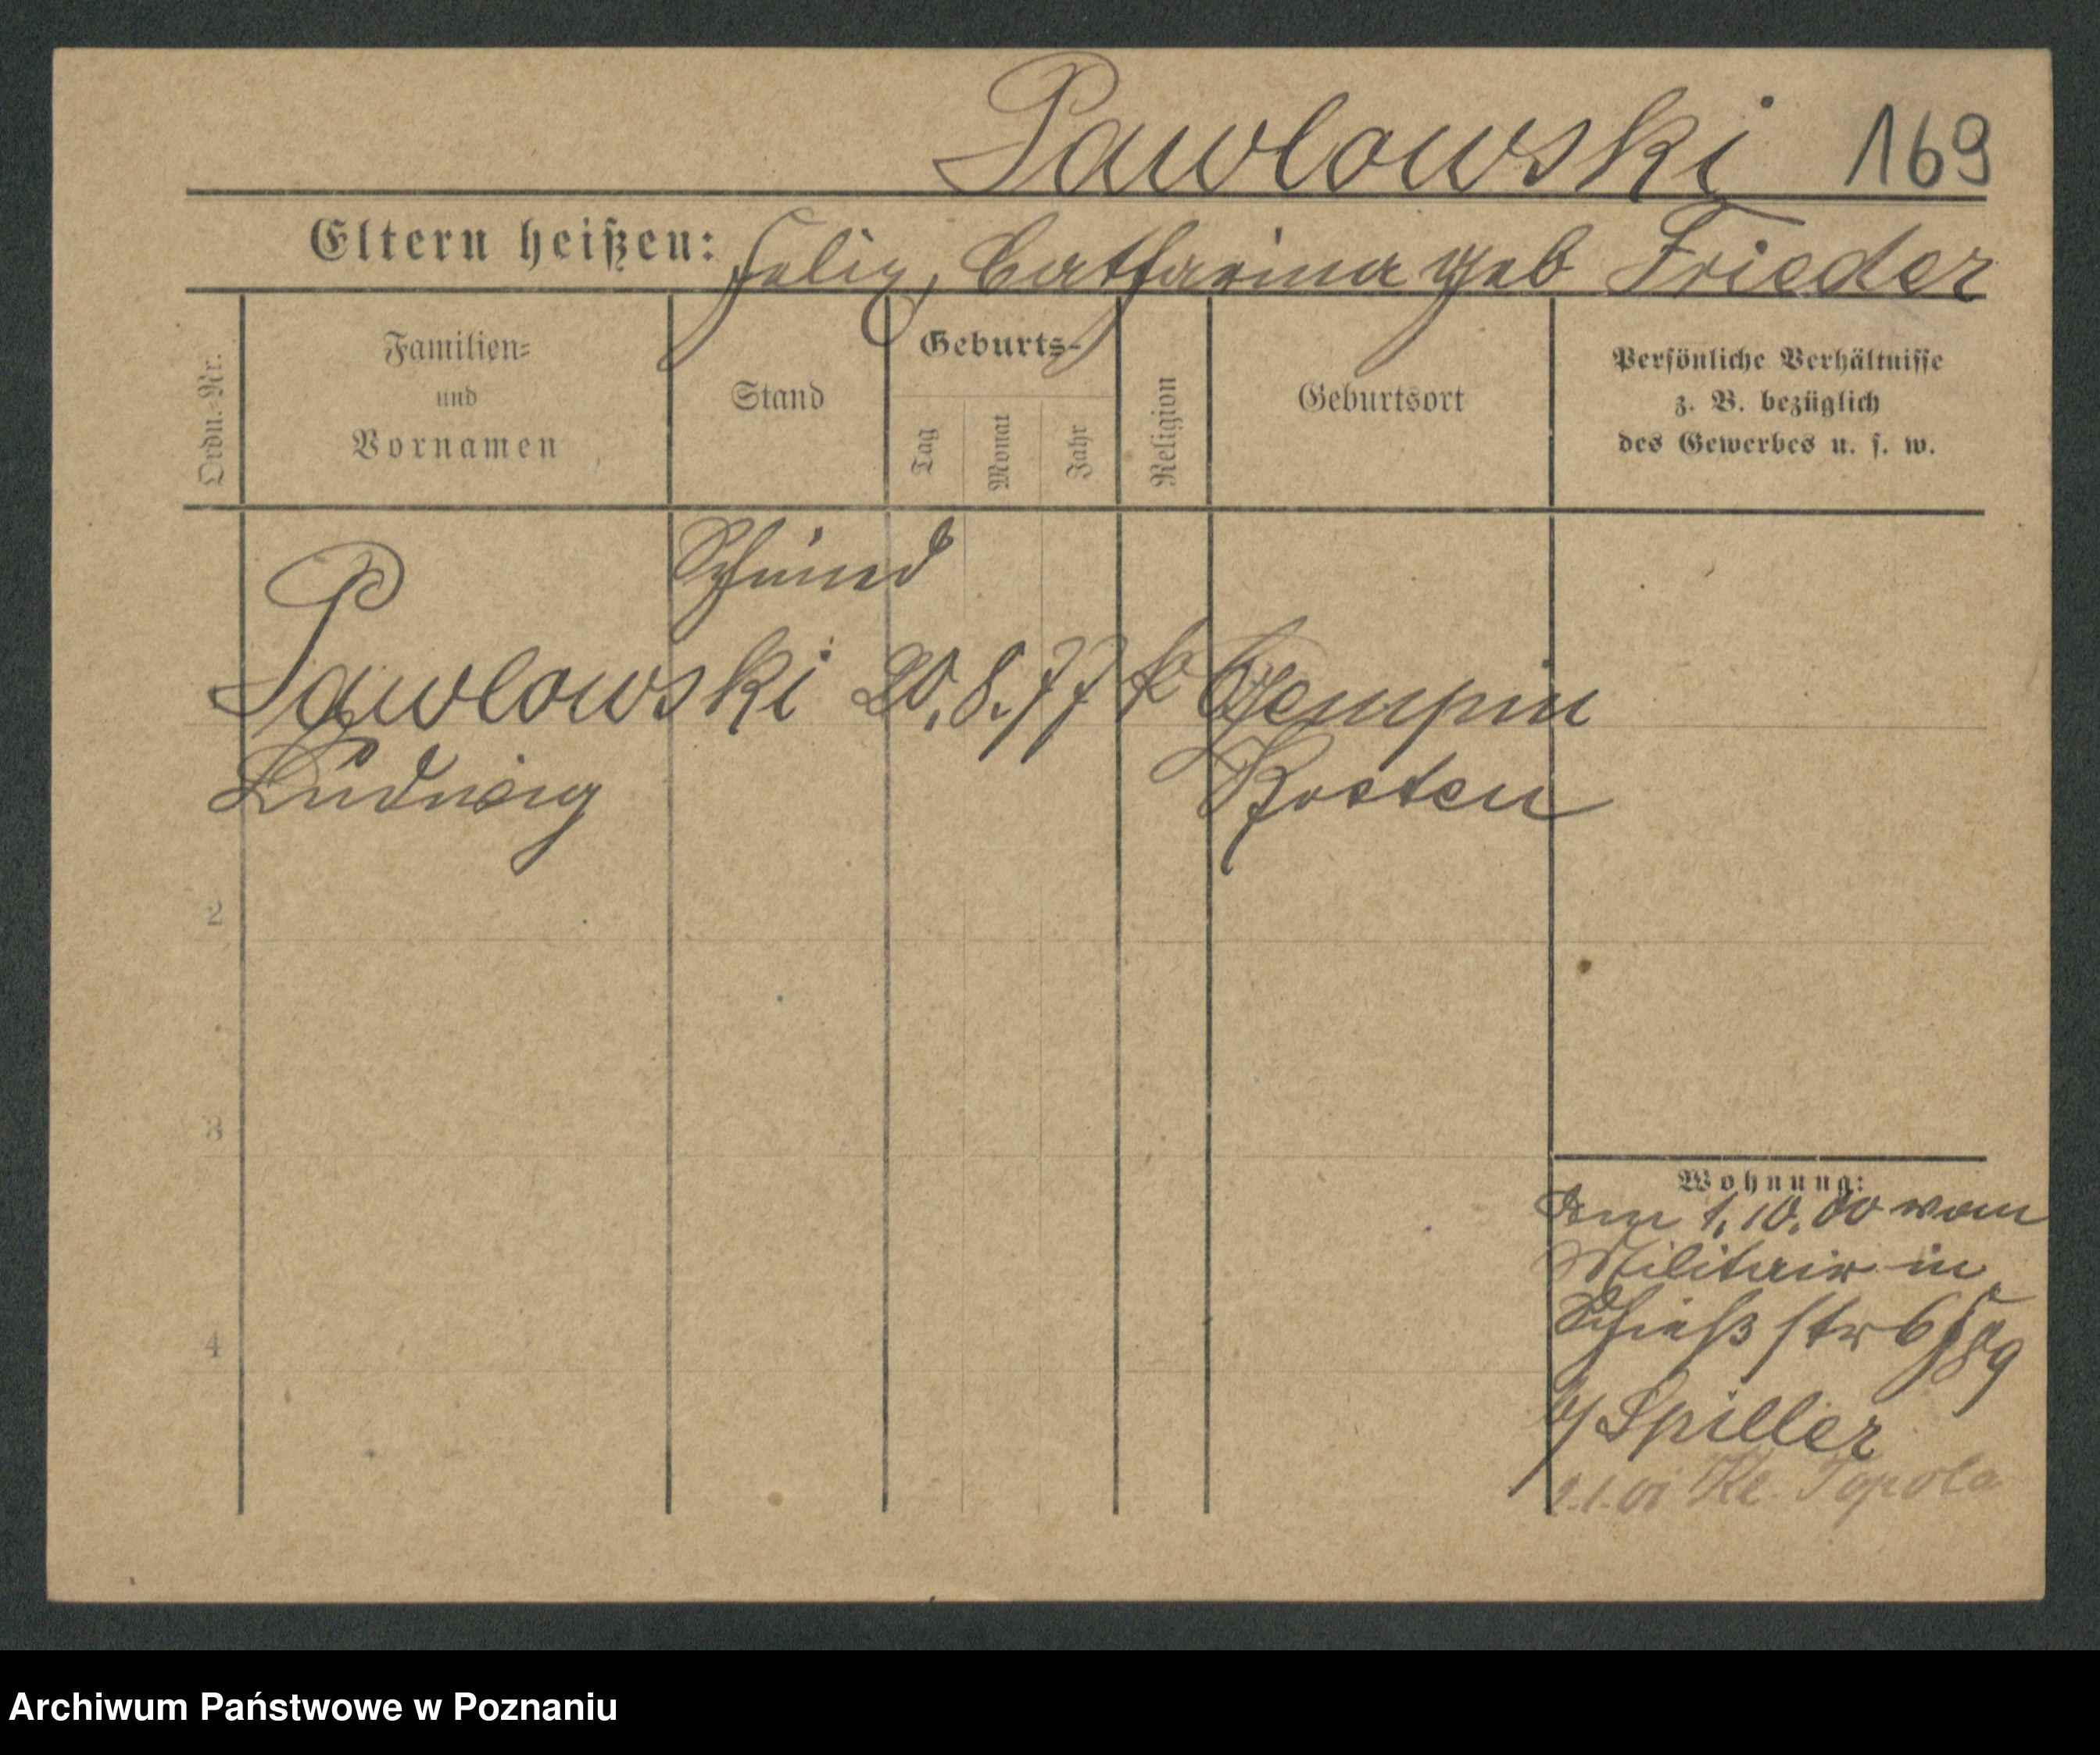 Pawlowski 169
Eltern heißen: Felix, Catharina geb Frieder
Ordn.-Nr.
Familien-
und
Vornamen
Stand
Geburts-
Tag
Monat
Jahr
Religion
Geburtsort
Persönliche Verhältnisse
z. B. bezüglich
des Gewerbes u. s. w.
Schmied
Pawlowski 20.8.77 k Czempin
Ludwig Kosten
2
3
4
Wohnung:
Am 1.10.00 vom
Militair in
Schieß str 6
b/ Spiller
2.1.01 Kl. Topola
Archiwum Państwowe w Poznaniu